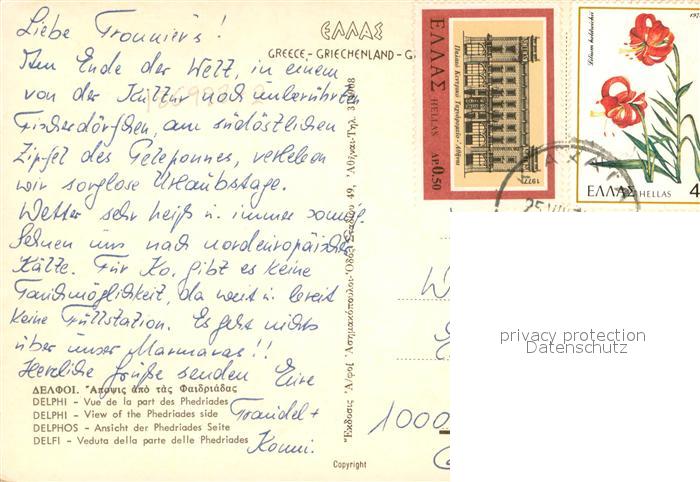 Liebe Tronnier's!
Am Ende der Welt, in einem
von der Kultur noch unberührten
Fischerdörfchen, am südöstlichen
Zipfel des Peleponnes, verleben
wir sorglose Urlaubstage.
Wetter sehr heiß u. immer sonnig
Sehnen uns nach nordeuropäischer
Kälte. Für Ko. gibt es keine
Tauchmöglichkeit, da weit u. breit
keine Füllstation. Es geht nichts
über unser Marmaras!!
Herzliche Grüße senden Eure
Traudel +
Konni.
ΔΕΛΦΟΙ. Ἄποψις ἀπὸ τὰς Φαιδριάδας
DELPHI - Vue de la part des Phedriades
DELPHI - View of the Phedriades side
DELPHOS - Ansicht der Phedriades Seite
DELFI - Veduta della parte delle Phedriades
ΕΛΛΑΣ
GREECE - GRIECHENLAND - G
Ἔκδοσις Ἀ/φοὶ Ἀσημακόπουλοι Ὁδὸς Σταδίου 49, Ἀθῆναι-Τηλ.
Copyright
1000
ΕΛΛΑΣ HELLAS
ΔΡ. 0.50
Παλαιό Κεντρικό Ταχυδρομείο - Ἀθήνα
1977
ΕΛΛΑΣ HELLAS
4
privacy protection
Datenschutz